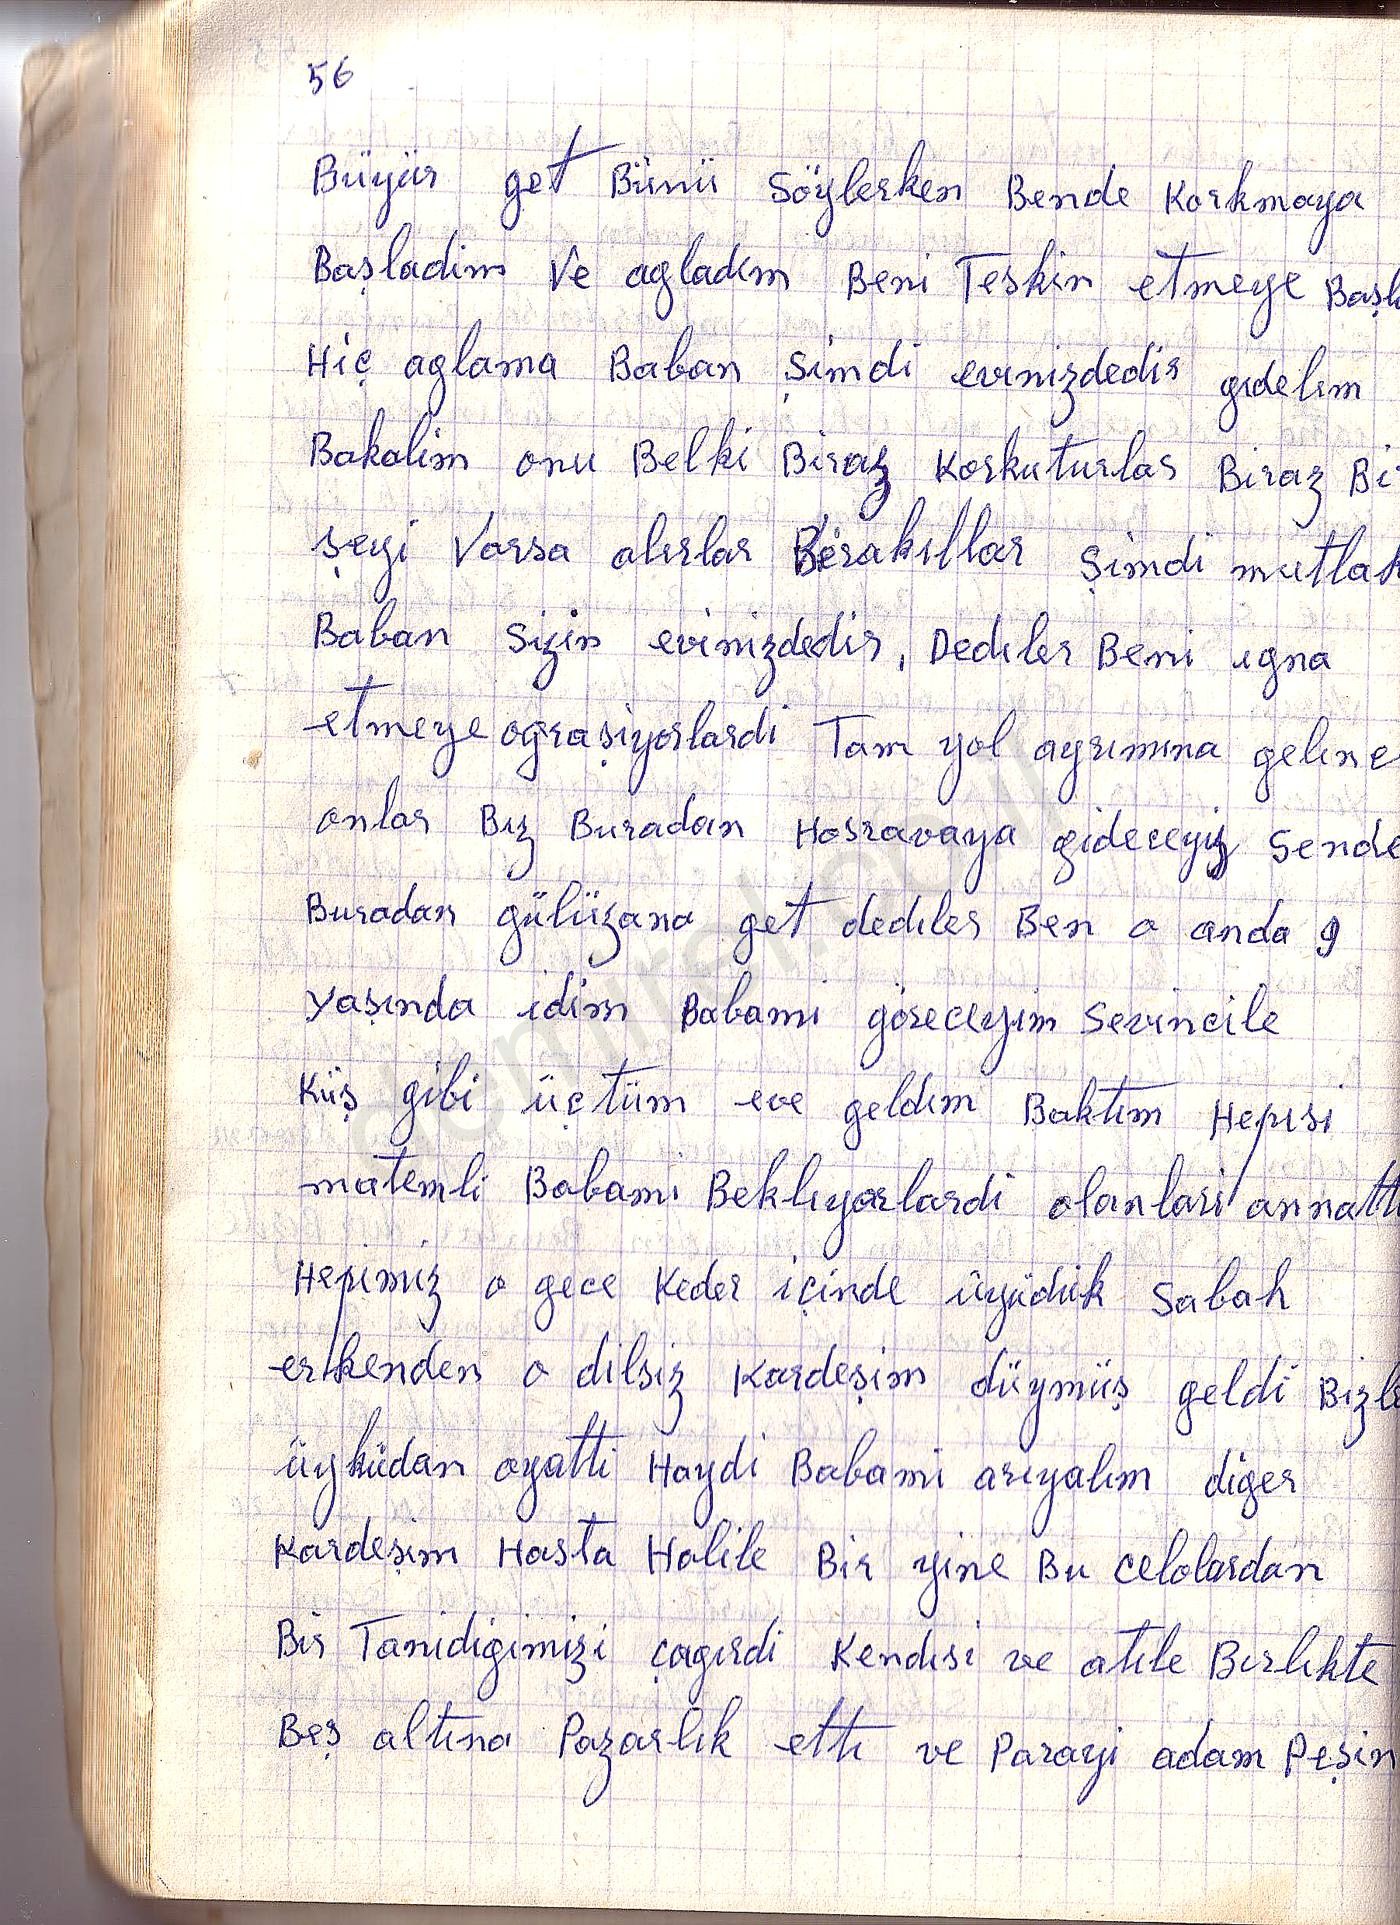 56
Büyür get Bünü Söylerken Bende Korkmaya
Başladim Ve agladım Beni Teskin etmeye Başl
Hiç aglama Baban Şimdi evinizdedir gıdelım
Bakalim onu Belki Biraz Korkuturlar Biraz Bi
şeyi Varsa alırlar Bırakıllar Şimdi mutlak
Baban Sizin evinizdedir, Dedıler Beni ıgna
etmeye ograşiyorlardi Tam yol ayrımına gelınc
onlar Bız Buradan Hosravaya gideceyiz Sende
Buradan gülüzana get dedıler Ben o anda 9
yaşında idim Babami göreceyim Sevincile
Küş gibi üçtüm eve geldım Baktım Hepısi
matemli Babami Beklıyorlardi olanlari annattı
Hepimiz o gece Keder içinde üyüdük Sabah
erkenden o dilsiz Kardeşim düymüş geldi Bizle
üyküdan oyattı Haydi Babami arıyalım diger
Kardeşim Hasta Halile Bir yine Bu Celolardan
Bir Tanidigimizi çagırdi Kendısi ve atıle Bırlıkte
Beş altına Pazarlık ettı ve Parayi adam Peşin
demirel.poli